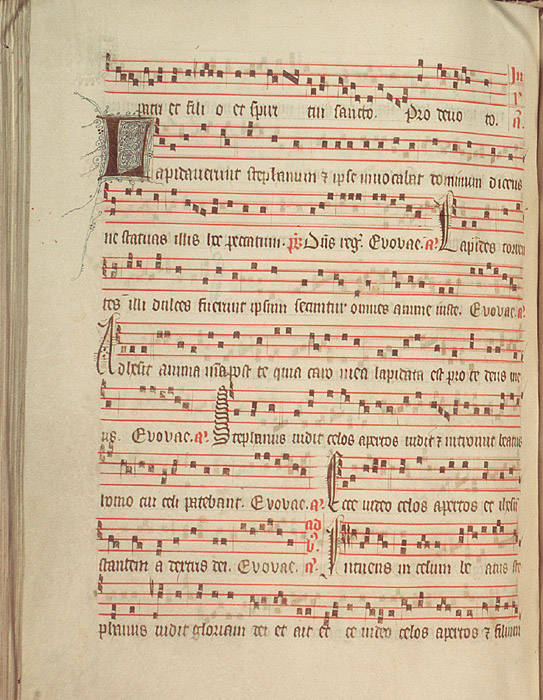 patri et fili o et spiri tui sancto. Pro deuo to. a.
Lapidauerunt stephanum ⁊ ipse inuocabat dominum dicens
ne statuas illis hoc peccatum. ps. Dns reg. Evovae. a. Lapides torren
tes illi dulces fuerunt ipsum secuntur omnes anime iuste. Evovae. a.
Adhesit anima mea post te quia caro mea lapidata est pro te deus me
us. Evovae. a. Stephanus uidit celos apertos uidit ⁊ introiuit beatus
homo cui celi patebant. Evovae. a. Ecce uideo celos apertos et ihesum
stantem a dextris dei. Evovae. ad a. Intuens in celum be atus ste
phanus uidit gloriam dei et ait ec ce uideo celos apertos ⁊ filium